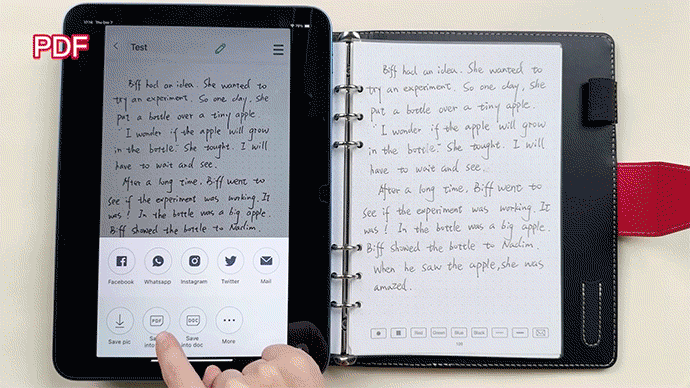 PDF
17:16 Thu Dec 7
79%
Test
Biff had an idea. She wanted to
try an experiment. So one day, she
put a bottle over a tiny apple.
"I wonder if the apple will grow
in the bottle." She tought. I will
have to wait and see.
After a long time, Biff went to
see if the experiment was working. It
was! In the bottle was a big apple.
Biff showed the bottle to Nadim.
Facebook
Whatsapp
Instagram
Twitter
Mail
PDF
DOC
Save pic
Save into doc
More
Biff had an idea. She wanted to
try an experiment. So one day, she
put a bottle over a tiny apple.
"I wonder if the apple will grow
in the bottle." She tought. I will
have to wait and see.
After a long time, Biff went to
see if the experiment was working. It
was! In the bottle was a big apple.
Biff showed the bottle to Nadim.
When he saw the apple, she was
amazed.
Red
Green
Blue
Black